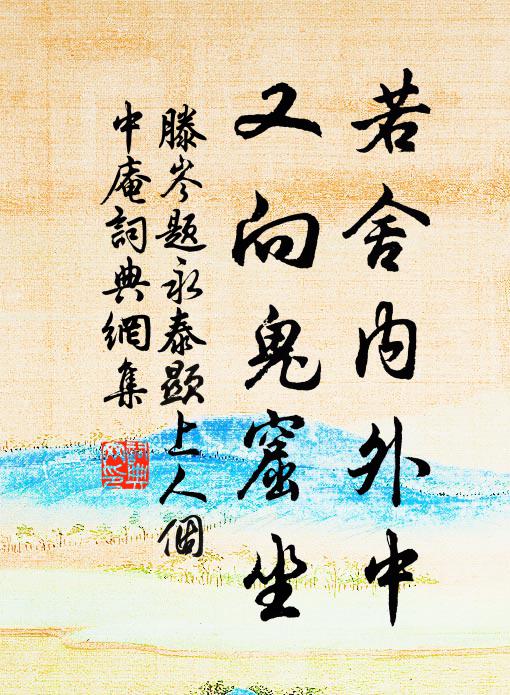 若舍內外中
又向鬼窟坐
滕岑題永泰顯上人個
中庵詞典網集